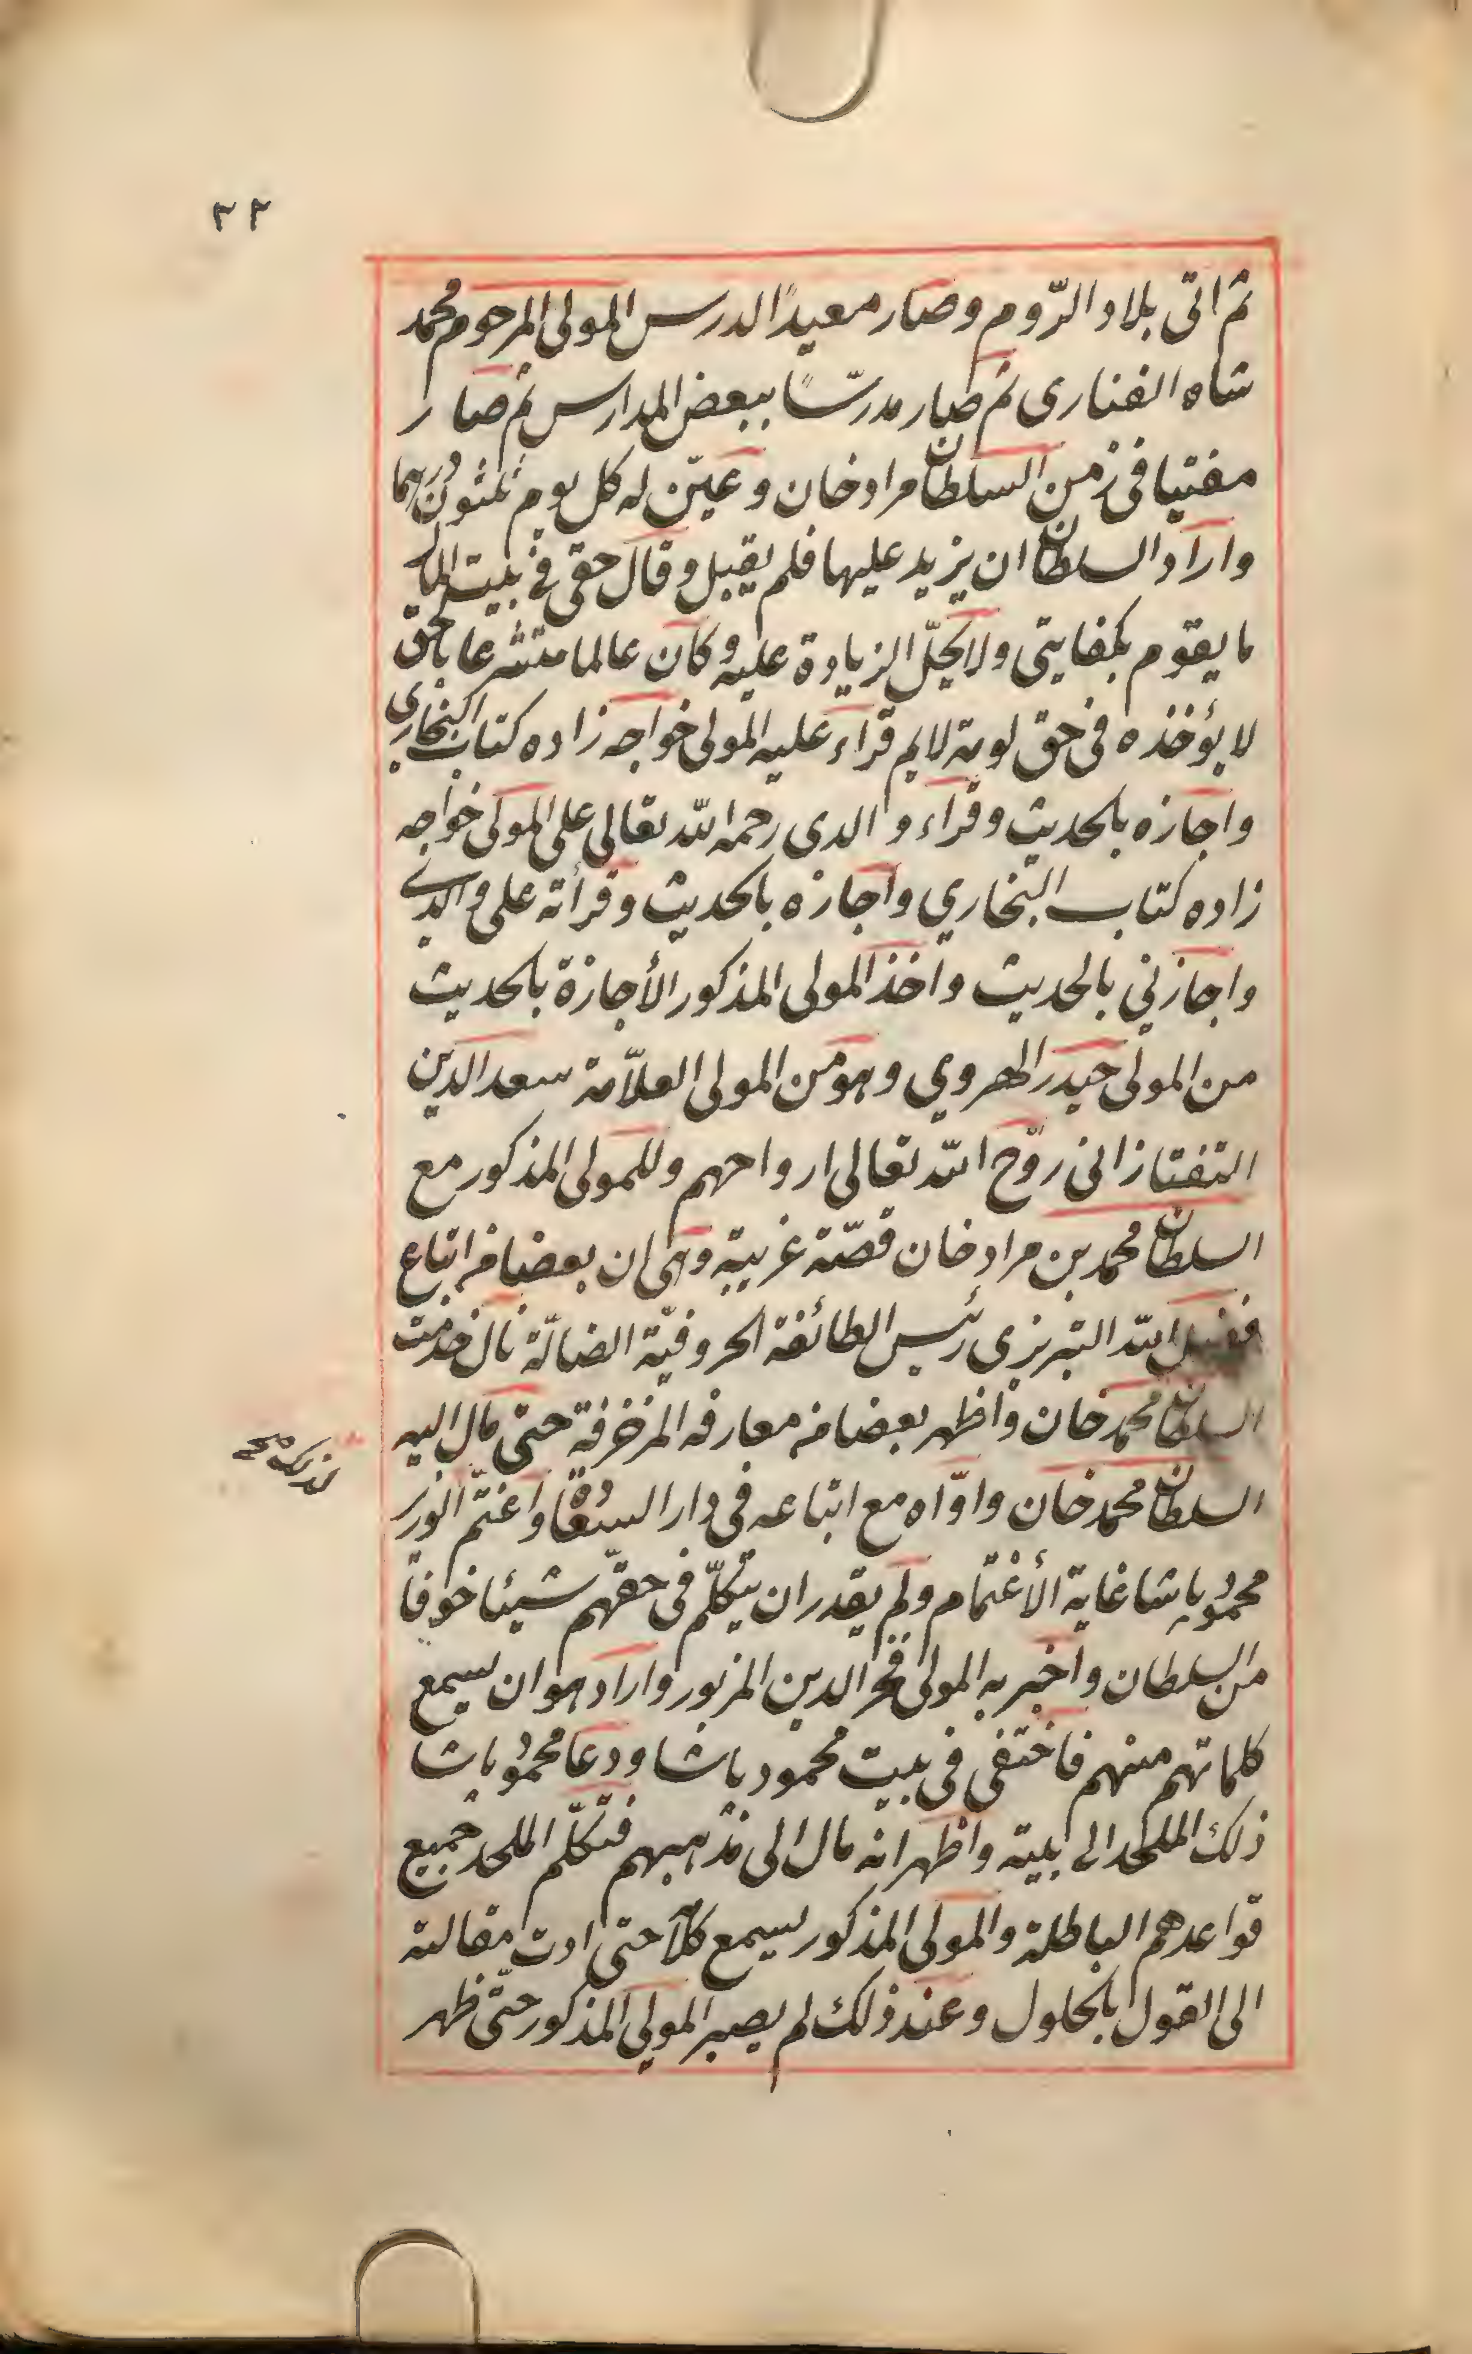 ٣٣
ثم اتى بلاد الرّوم وصار معيدًا لدرس المولى المرحوم محمد
شاه الفنارى ثم صار مدرّسًا ببعض المدارس ثم صار
مفتيا فى زمن السلطان مراد خان وعيّن له كل يوم ثلثون درهما
واراد السلطان ان يزيد عليها فلم يقبل وقال حقى فى بيت المال
ما يقوم بكفايتى ولا يحلّ الزيادة عليه وكان عالما متشرعا بالحق
لا يؤخذه فى حق لومة لايم قراء عليه المولى خواجه زاده كتاب البخارى
واجازه بالحديث وقراء والدى رحمه اللّه تعالى على المولى خواجه
زاده كتاب البخاري واجازه بالحديث وقرأته على والدى
واجازني بالحديث واخذ المولى المذكور الأجازة بالحديث
من المولى حيدر الهروي وهو من المولى العلاّمة سعد الدين
التفتازانى روّح اللّه تعالى ارواحهم وللمولى المذكور مع
السلطان محمد بن مراد خان قصّة غريبة وهى ان بعضا من اتباع
فضل اللّه التبريزى رئيس الطائفة الحروفيّة الضالّة نال خدمت
السلطان محمد خان واظهر بعضا من معارفه المزخرفة حتى مال اليه
السلطان محمد خان واوّاه مع اتباعه فى دار السعادة واغتمّ الوزير
لذلك صح
محمود باشا غاية الأغتمام ولم يقدر ان يتكلّم فى حقّهم شيئا خوفا
من السلطان واخبر به المولى فخر الدين المزبور واراد هو ان يسمع
كلماتهم منهم فاختفى فى بيت محمود باشا ودعا محمود باشا
ذلك الملحد الى بيته واظهر انه مال الى مذهبهم فتكلّم الملحد جميع
قواعدهم الباطلة والمولى المذكور يسمع كلامه حتى ادت مقالته
الى القول بالحلول وعند ذلك لم يصبر المولى المذكور حتّى ظهر